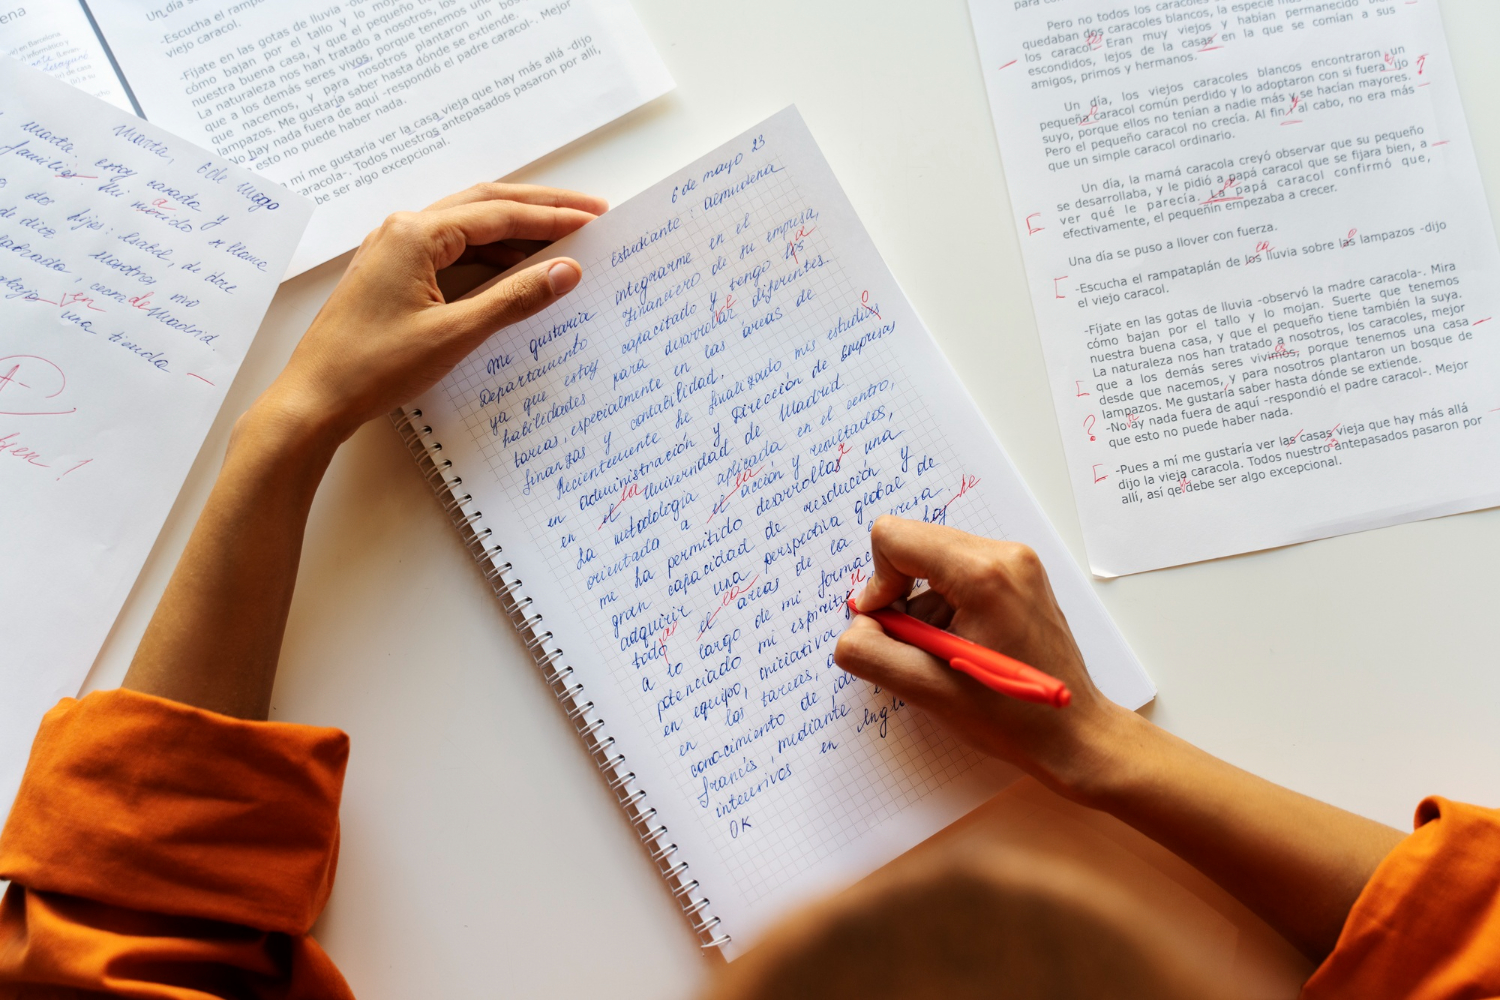 ena
en Barcelona
Un día se puso
-Escucha el rampa
viejo caracol.
-Fíjate en las gotas de lluvia -ob
cómo bajan por el tallo y lo mojan.
nuestra buena casa, y que el pequeño
La naturaleza nos han tratado a nosotros, los
que a los demás seres vivos, porque tenemos una
que nacemos, y para nosotros plantaron un bos
lampazos. Me gustaría saber hasta dónde se extiende.
-No hay nada fuera de aquí -respondió el padre caracol-. Mejor
esto no puede haber nada.
a mí me gustaría ver la casa vieja que hay más allá -dijo
caracola-. Todos nuestros antepasados pasaron por allí,
be ser algo excepcional.
Marta, 6 de mayo
Marta, estoy casada y
familia. Mi marido se llama
a
dos hijos: Isabel, de doce
de diez
Nosotros
cerca de Madrid.
en
una tienda
A-
bien!
6 de mayo 23
Estudiante: Almudena
Me gustaría integrarme en el
Departamento Financiero de su empresa,
ya que estoy capacitado y tengo las
habilidades para desarrollar diferentes
tareas, especialmente en las áreas de
finanzas y contabilidad.
Recientemente he finalizado mis estudios
en administración y Dirección de Empresas
en el la Universidad de Madrid.
La metodología aplicada en el centro,
orientada a el la acción y resultados,
me ha permitido desarrollar una
gran capacidad de resolución y
adquirir una perspectiva global de
todo el áreas de la empresa.
a lo largo de mi formac
potenciado mi espíritu
en equipo, iniciativa
en las tareas,
conocimiento de idi
francés, mediante
intensivos en Ingl
OK
para co
Pero no todos los caracoles
quedaban dos caracoles blancos, la especie más
los caracol. Eran muy viejos y habían permanecido
escondidos, lejos de la casas en la que se comían a sus
amigos, primos y hermanos.
Un día, los viejos caracoles blancos encontraron un
pequeña caracol común perdido y lo adoptaron con si fuera ijo
suyo, porque ellos no tenían a nadie más y se hacían mayores.
Pero el pequeño caracol no crecía. Al fin i al cabo, no era más
que un simple caracol ordinario.
Un día, la mamá caracola creyó observar que su pequeño
se desarrollaba, y le pidió a papá caracol que se fijara bien, a
ver qué le parecía. La papá caracol confirmó que,
efectivamente, el pequeñín empezaba a crecer.
Una día se puso a llover con fuerza.
-Escucha el rampataplán de los lluvia sobre las lampazos -dijo
el viejo caracol.
-Fíjate en las gotas de lluvia -observó la madre caracola-. Mira
cómo bajan por el tallo y lo mojan. Suerte que tenemos
nuestra buena casa, y que el pequeño tiene también la suya.
La naturaleza nos han tratado a nosotros, los caracoles, mejor
que a los demás seres vivimos, porque tenemos una casa
desde que nacemos, y para nosotros plantaron un bosque de
lampazos. Me gustaría saber hasta dónde se extiende.
-No ay nada fuera de aquí -respondió el padre caracol-. Mejor
que esto no puede haber nada.
-Pues a mí me gustaría ver las casas vieja que hay más allá
dijo la vieja caracola. Todos nuestro antepasados pasaron por
allí, así qe debe ser algo excepcional.